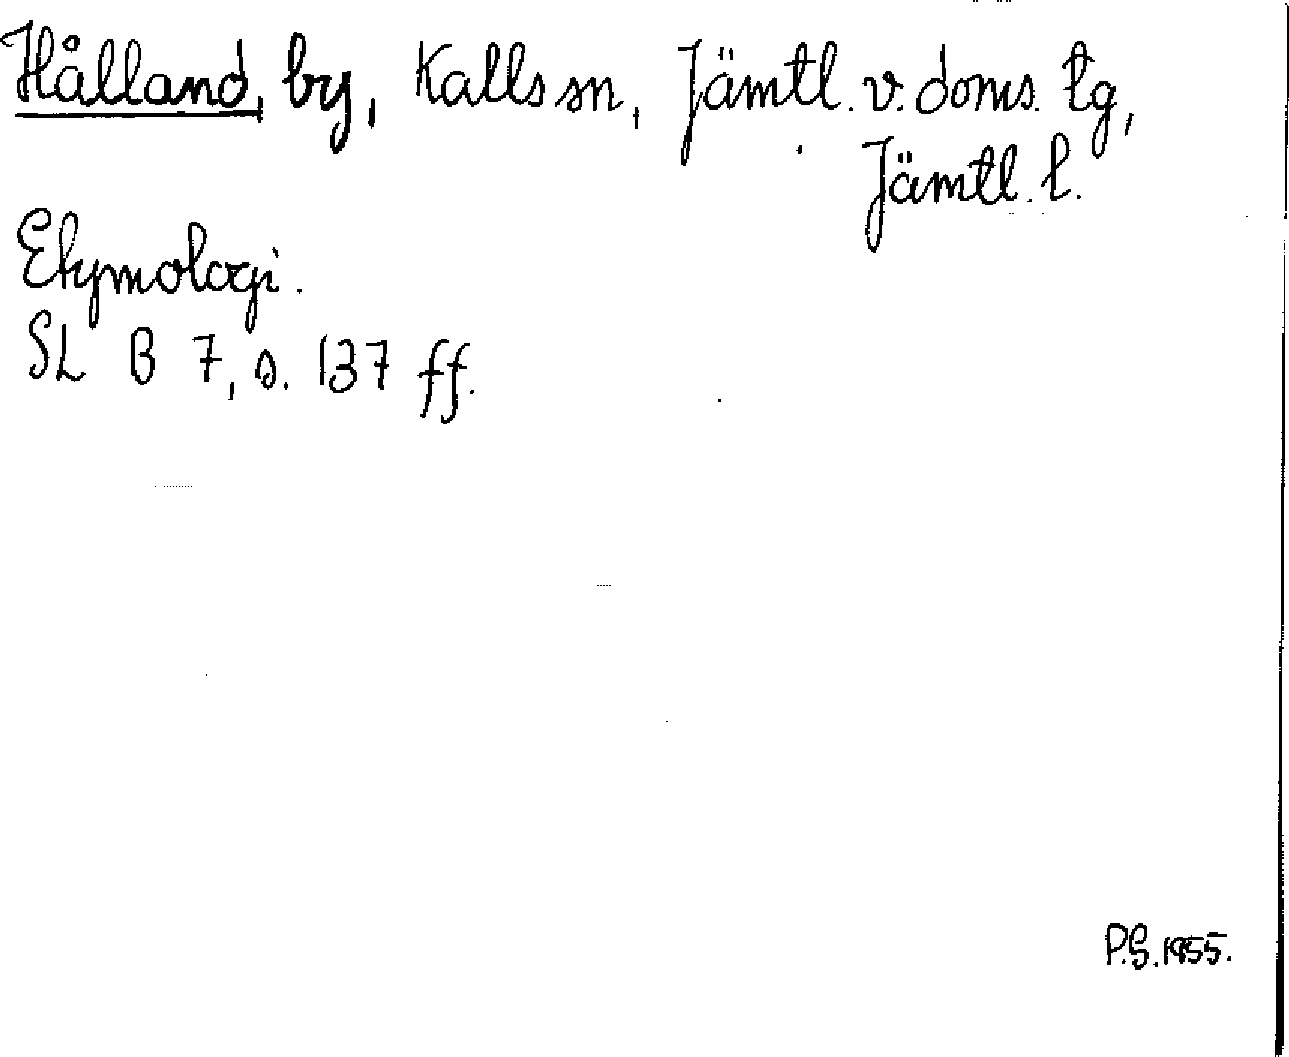 Hålland, by, Kalls sn, Jämtl. v. doms. tg,
Jämtl. l.
Etymologi.
SL B 7, s. 137 ff.
P.S. 1955.